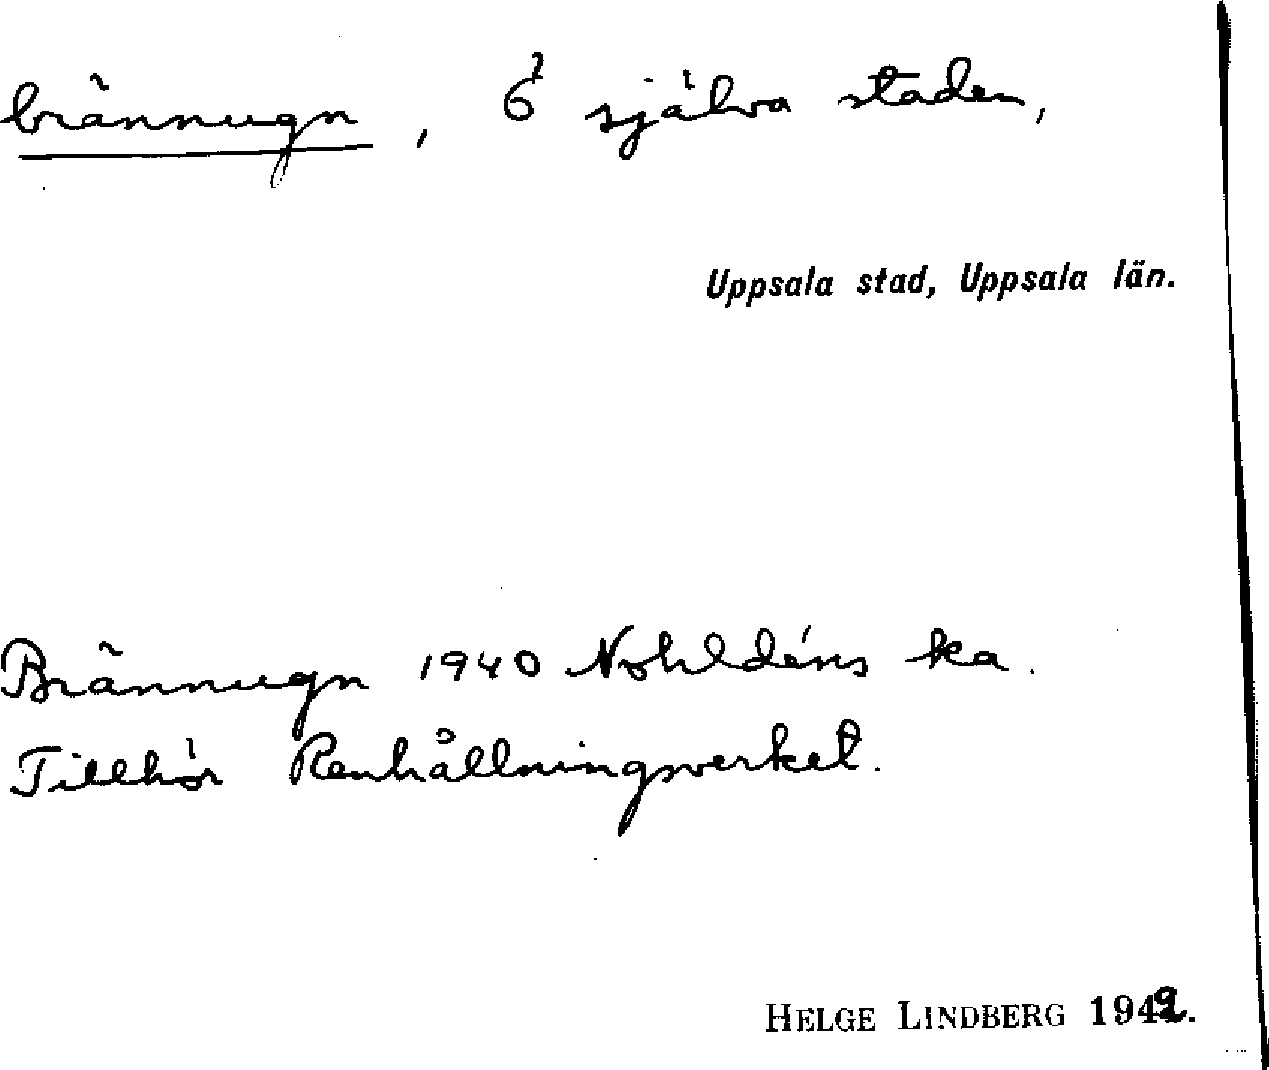 brännugn, Ö själva staden,
Uppsala stad, Uppsala län.
Brännugn 1940 Nohldéns ka.
Tillhör Renhållningsverket.
HELGE LINDBERG 1942.